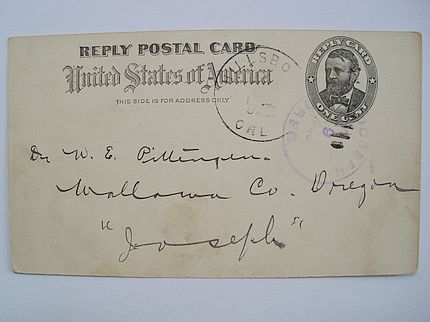 REPLY POSTAL CARD
United States of America
THIS SIDE IS FOR ADDRESS ONLY
REPLY CARD
ONE CENT
CAL
JOSEPH
OREG
Dr W. E. Pittenger
Wallowa Co. Oregon
"Joseph"